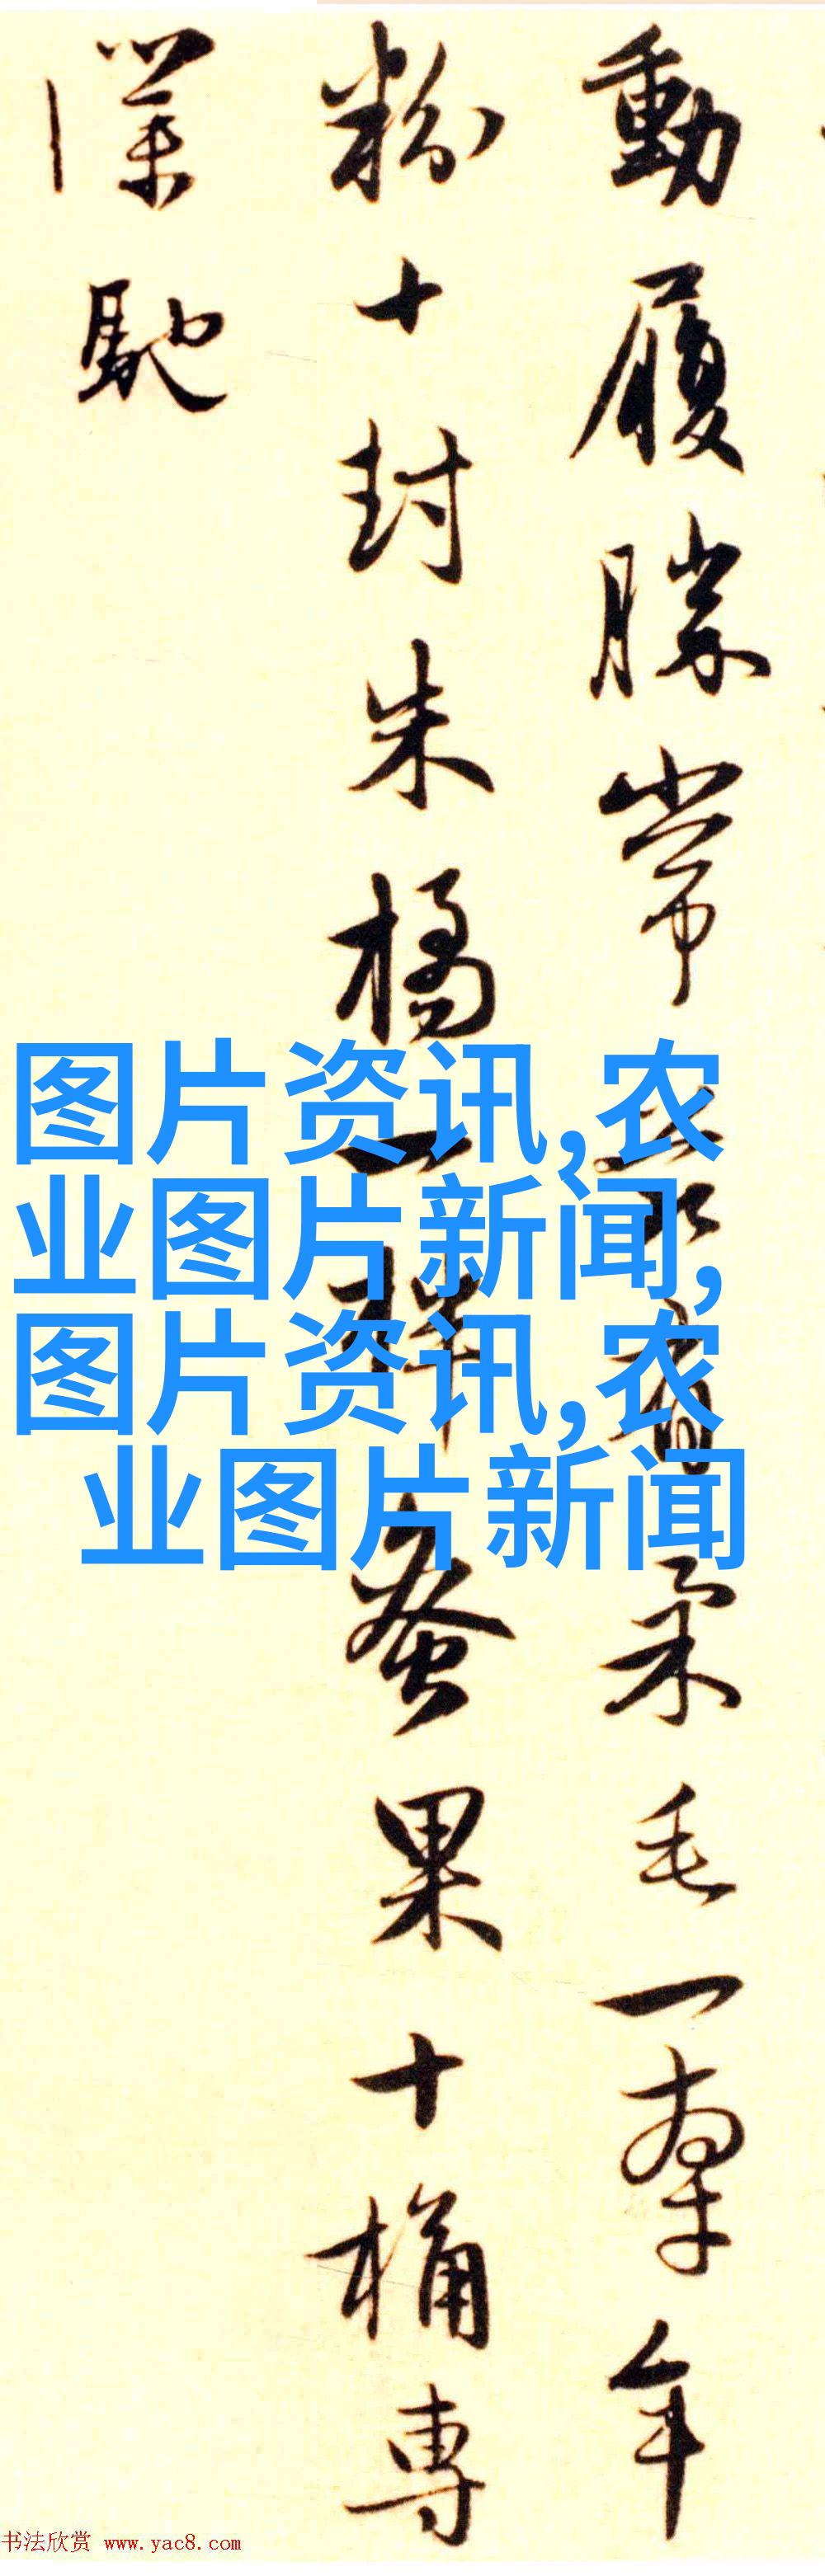 動履勝常有柔毛一羣年
粉十封朱橘一蚕果十桶専
僕馳
图片资讯,农
业图片新闻,
图片资讯,农
业图片新闻
书法欣赏 www.yac8.com